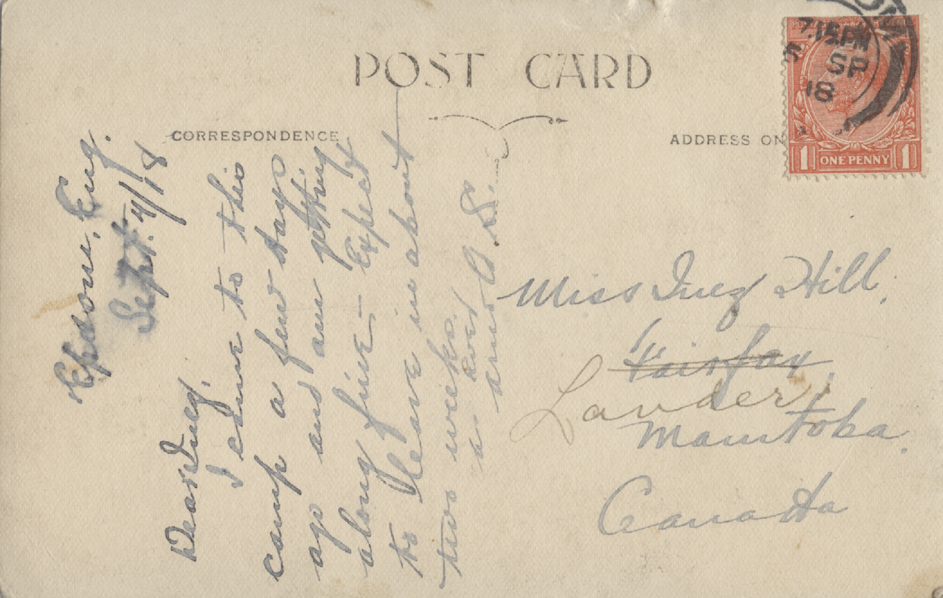 POST CARD
CORRESPONDENCE
ADDRESS ON
7.15 PM
SP
18
1 ONE PENNY 1
Epsom, Eng.
Sept. 4/18
Dear Inez,
I came to this
camp a few days
ago and am getting
along fine – Expect
to leave in about
two weeks.
as ever
A. S.
Miss Inez Hill,
Fairfax
Lauder,
Manitoba
Canada